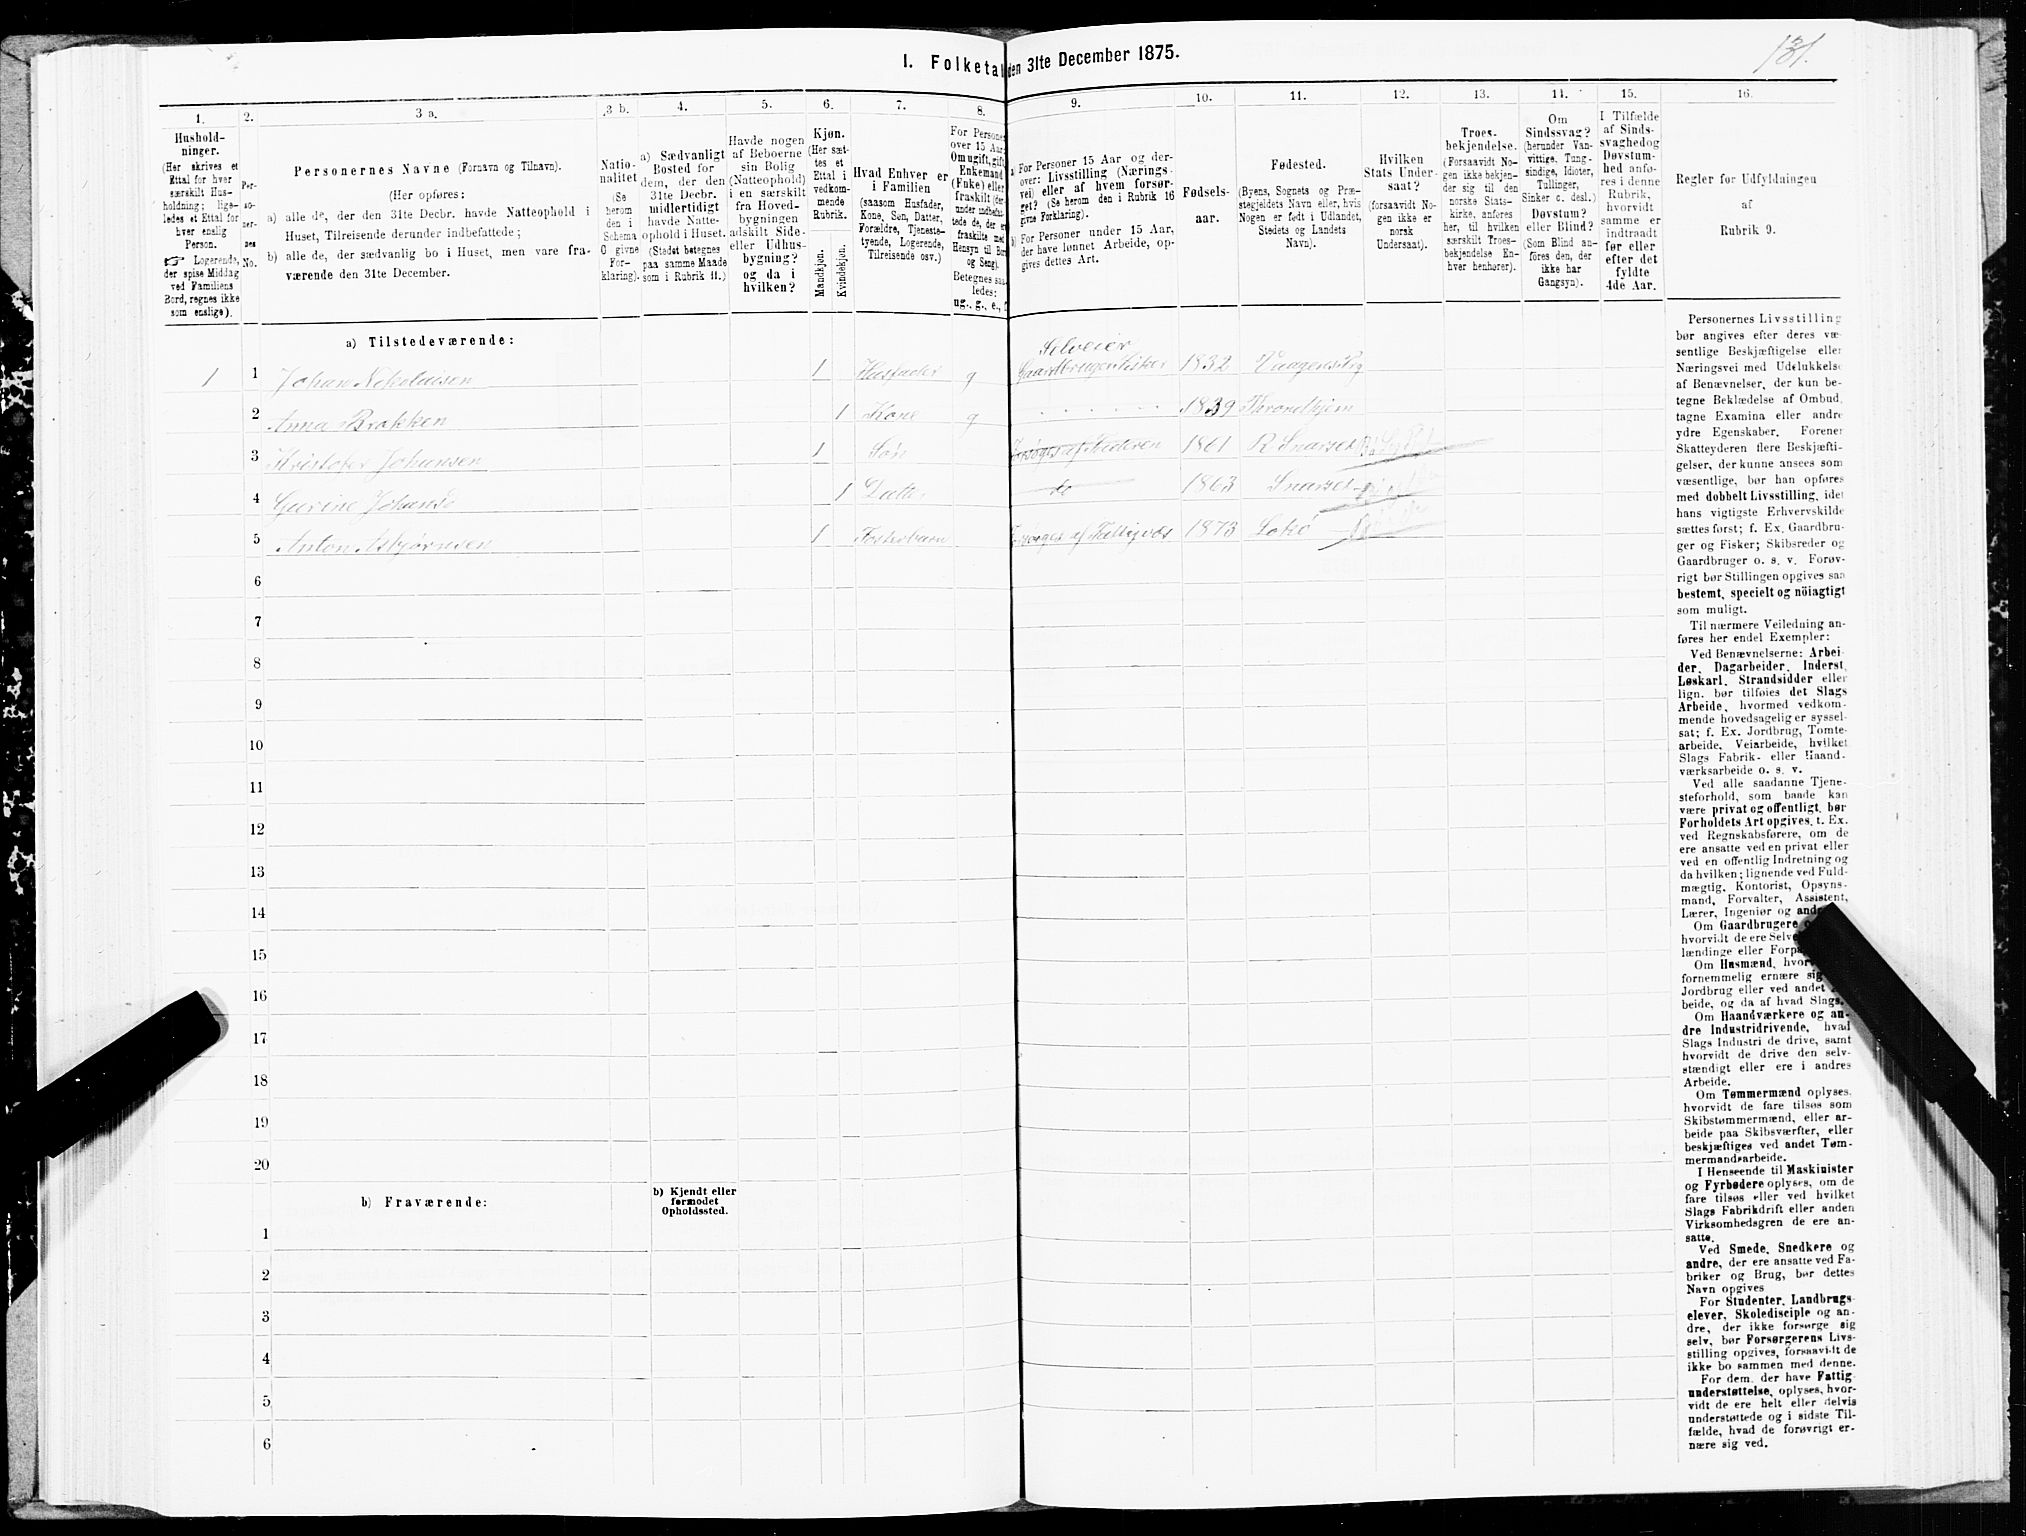 131.
I. Folketal den 31te December 1875.
1. 2. 3 a. 3 b. 4. 5. 6. 7. 8. 9. 10. 11. 12. 13. 14. 15. 16.
Hushold-
ninger.
(Her skrives et
Ettal for hver
særskilt Hus-
holdning; lige-
ledes et Ettal for
hver enslig
Person.
☞ Logerende,
der spise Middag
ved Familiens
Bord, regnes ikke
som enslige).
Per-
so-
ner-
nes
No.
Personernes Navne (Fornavn og Tilnavn).
(Her opføres:
a) alle de, der den 31te Decbr. havde Natteophold i
Huset, Tilreisende derunder indbefattede;
b) alle de, der sædvanlig bo i Huset, men vare fra-
værende den 31te December.
Natio-
nalitet
(Se
herom
den i
Schema
G givne
For-
klaring).
a) Sædvanligt
Bosted for
dem, der den
31te Decbr.
midlertidigt
havde Natte-
ophold i Huset.
(Stedet betegnes
paa samme Maade
som i Rubrik 11.)
Havde nogen
af Beboerne
sin Bolig
(Natteophold)
i en særskilt
fra Hoved-
bygningen
adskilt Side-
eller Udhus-
bygning?
og da i
hvilken?
Kjøn.
(Her sæt-
tes et
Ettal i
vedkom-
mende
Rubrik.
Mandkjøn.
Kvindekjøn.
Hvad Enhver er
i Familien
(saasom Husfader,
Kone, Søn, Datter,
Forældre, Tjeneste-
tyende, Logerende,
Tilreisende osv.)
For Personer
over 15 Aar:
Om ugift, gift,
Enkemand
(Enke) eller
fraskilt (der-
under indbefat-
tede de, der er
fraskilte med
Hensyn til Bord
og Seng).
Betegnes saa-
ledes:
ug., g., e., f
a) For Personer 15 Aar og der-
over: Livsstilling (Nærings-
vei) eller af hvem forsør-
get? (Se herom den i Rubrik 16
givne Forklaring).
b) For Personer under 15 Aar,
der have lønnet Arbeide, op-
gives dettes Art.
Fødsels-
aar.
Fødested.
(Byens, Sognets og Præ-
stegjeldets Navn eller, hvis
Nogen er født i Udlandet,
Stedets og Landets
Navn).
Hvilken
Stats Under-
saat?
(forsaavidt No-
gen ikke er
norsk
Undersaat).
Troes-
bekjendelse.
(Forsaavidt No-
gen ikke bekjen-
der sig til den
norske Stats-
kirke, anføres
her, til hvilken
særskilt Troes-
bekjendelse En-
hver henhører).
Om
Sindssvag?
(herunder Van-
vittige, Tung-
sindige, Idioter,
Tullinger,
Sinker o. desl.)
Døvstum?
eller Blind?
(Som Blind an-
føres den, der
ikke har
Gangsyn).
I Tilfælde
af Sinds-
svaghed og
Døvstum-
hed anfø-
res i denne
Rubrik,
hvorvidt
samme er
indtraadt
før eller
efter det
fyldte
4de Aar.
Regler for Udfyldningen
af
Rubrik 9.
a) Tilstedeværende:
Selveier
1 1 Johan Nikolaisen 1 Husfader g Gaardbruger Fisker 1832
2 Anna Brakken 1 Kone g 1839 Throndhjem
3 Kristofer Johansen 1 Søn Forsøges af Faderen 1861
4 Gurine Johansd 1 Datter do 1863
5 Anton Asbjørnsen 1 Fosterbarn 1873
6
7
8
9
10
11
12
13
14
15
16
17
18
19
20
b) Fraværende:
b) Kjendt eller
formodet
Opholdssted.
1
2
3
4
5
6
Personernes Livsstilling
bør angives efter deres væ-
sentlige Beskjæftigelse eller
Næringsvei med Udelukkelse
af Benævnelser, der kun be-
tegne Beklædelse af Ombud,
tagne Examina eller andre
ydre Egenskaber. Forener
Skatteyderen flere Beskjæfti-
gelser, der kunne ansees som
væsentlige, bør han opføres
med dobbelt Livsstilling, idet
hans vigtigste Erhvervskilde
sættes først; f. Ex. Gaardbru-
ger og Fisker; Skibsreder og
Gaardbruger o. s. v. Forøv-
rigt bør Stillingen opgives saa
bestemt, specielt og nöiagtigt
som muligt.
Til nærmere Veiledning an-
føres her endel Exempler:
Ved Benævnelserne: Arbei-
der, Dagarbeider, Inderst,
Løskarl, Strandsidder eller
lign. bør tilføies det Slags
Arbeide, hvormed vedkom-
mende hovedsagelig er syssel-
sat; f. Ex. Jordbrug, Tomte-
arbeide, Veiarbeide, hvilket
Slags Fabrik- eller Haand-
værksarbeide o. s. v.
Ved alle saadanne Tjene-
steforhold, som baade kan
være privat og offentligt, bør
Forholdets Art opgives, t. Ex.
ved Regnskabsførere, om de
ere ansatte ved en privat eller
ved en offentlig Indretning og
da hvilken; lignende ved Fuld-
mægtig, Kontorist, Opsyns-
mand, Forvalter, Assistent,
Lærer, Ingeniør og
Om Gaardbrugere
hvorvidt de ere
lændinge eller
Om Husmænd,
fornemmelig ernære
Jordbrug eller ved andet
beide, og da af hvad Slags.
Om Haandværkere og an-
dre Industridrivende, hvad
Slags Industri de drive, samt
hvorvidt de drive den selv-
stændigt eller ere i andres
Arbeide.
Om Tømmermænd oplyses,
hvorvidt de fare tilsøs som
Skibstømmermænd, eller ar-
beide paa Skibsværfter, eller
beskjæftiges ved andet Tøm-
mermandsarbeide.
I Henseende til Maskinister
og Fyrbødere oplyses, om de
fare tilsøs eller ved hvilket
Slags Fabrikdrift eller anden
Virksomhedsgren de ere an-
satte.
Ved Smede, Snedkere og
andre, der ere ansatte ved Fa-
briker og Brug, bør dettes
Navn opgives
For Studenter, Landbrugs-
elever, Skoledisciple og an-
dre, der ikke forsørge sig
selv, bør Forsørgerens Livs-
stilling opgives, forsaavidt de
ikke bo sammen med denne.
For dem, der have Fattig-
understøttelse, oplyses, hvor-
vidt de ere helt eller delvis
understøttede og i sidste Til-
fælde, hvad de forøvrigt er-
nære sig ved.